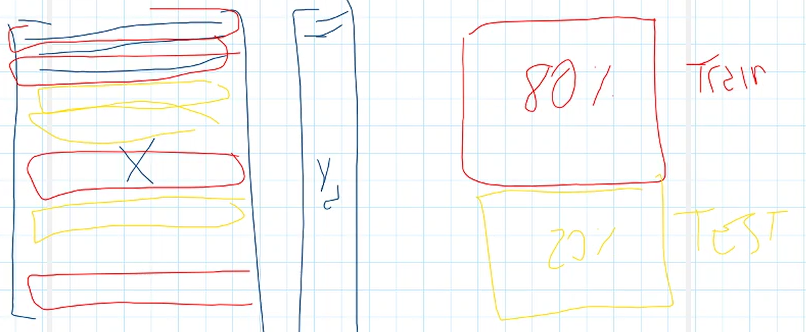 X
y
80%
Train
20%
TEST